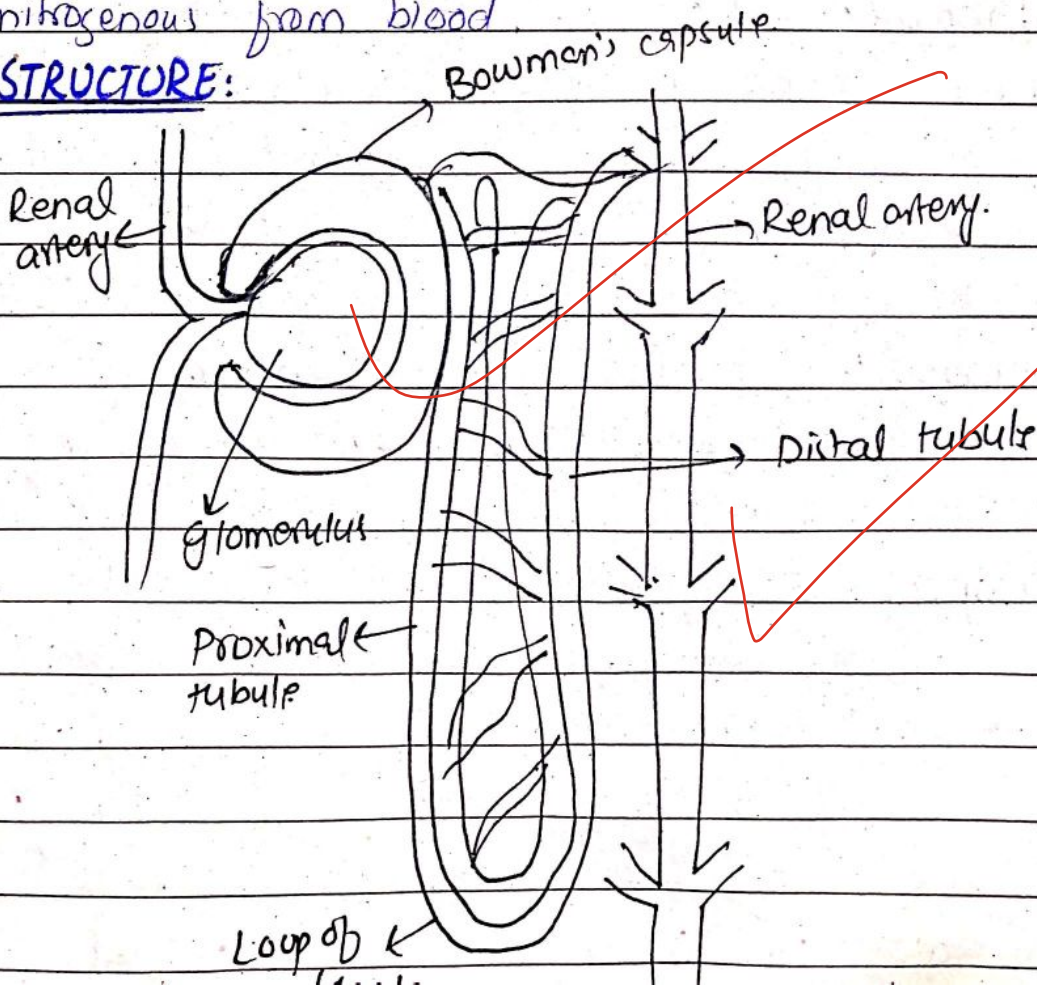 nitrogenous from blood
STRUCTURE:
Bowman's capsule.
Renal
artery
Renal artery.
Distal tubule
glomerulus
Proximal
tubule
Loop of